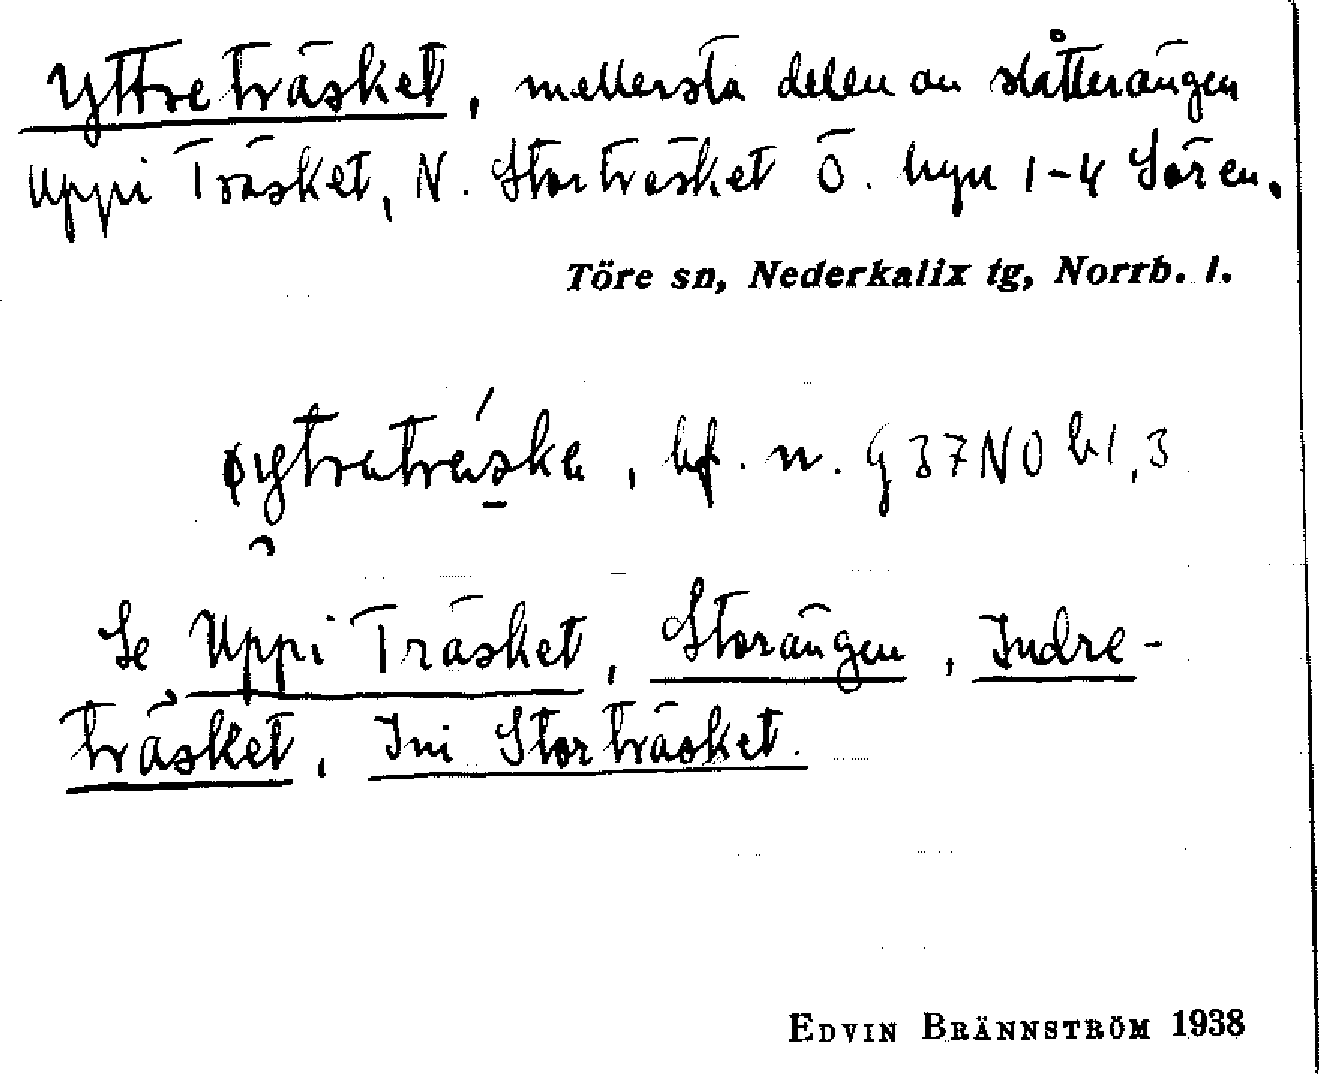 Yttreträsket, mellersta delen av slåtterängen
Uppi Träsket, N. Storträsket Ö. byn 1-4 Sören.
Töre sn, Nederkalix tg, Norrb. l.
bf. n. G 37 NO b1,3
Se Uppi Träsket, Storängen, Indre-
träsket, Ini Storträsket.
EDVIN BRÄNNSTRÖM 1938